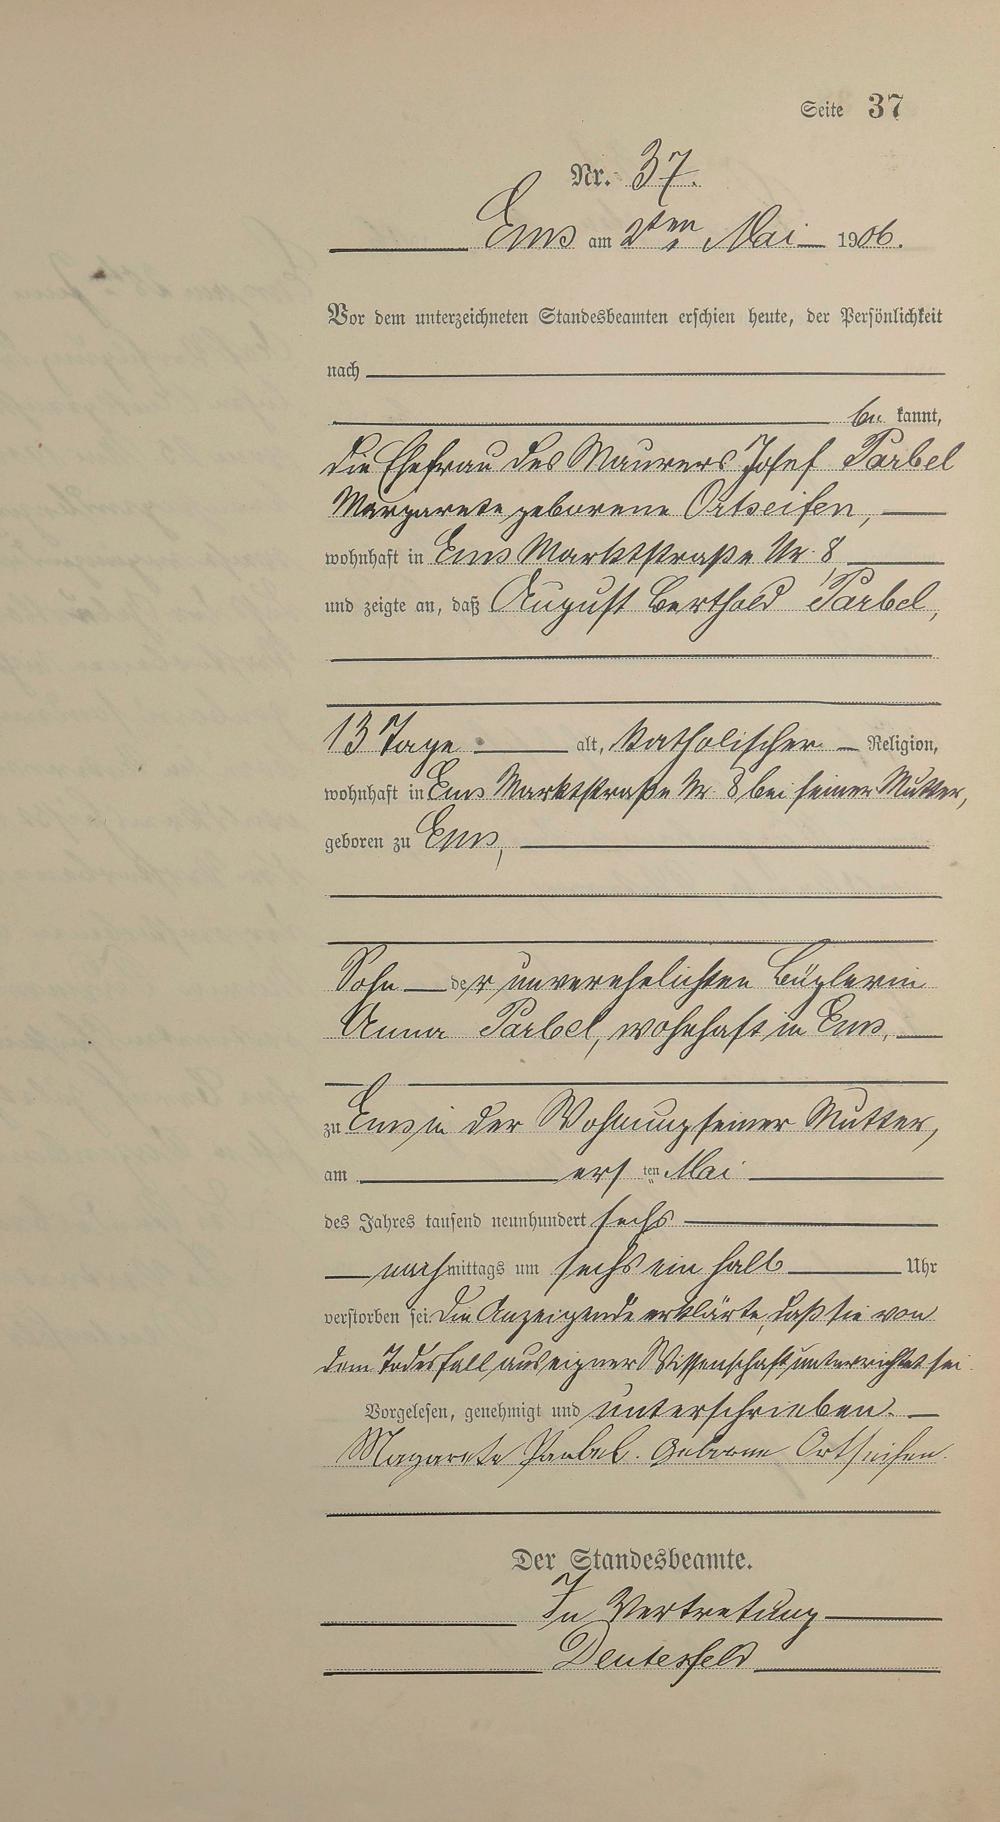 Seite 37
Nr. 37.
Ems am 2ten Mai 1906.
Vor dem unterzeichneten Standesbeamten erschien heute, der Persönlichkeit
nach
be kannt,
die Ehefrau des Maurers Josef Parbel
Margarete geborene Ortseifen,
wohnhaft in Ems Marktstraße Nr. 8
und zeigte an, daß August Berthold Parbel,
13 Tage alt, katholischer Religion,
wohnhaft in Ems Marktstraße Nr. 8 bei seiner Mutter,
geboren zu Ems,
Sohn der unverehelichten Büglerin
Anna Parbel, wohnhaft in Ems,
zu Ems in der Wohnung seiner Mutter,
am ers ten Mai
des Jahres tausend neunhundert sechs
nach mittags um sechs ein halb Uhr
verstorben sei. Die Anzeigende erklärte, daß sie von
dem Todesfall aus eigner Wissenschaft unterrichtet sei.
Vorgelesen, genehmigt und unterschrieben.
Magarete Parbel. Geborne Ortseifen.
Der Standesbeamte.
In Vertretung
Deutesfeld